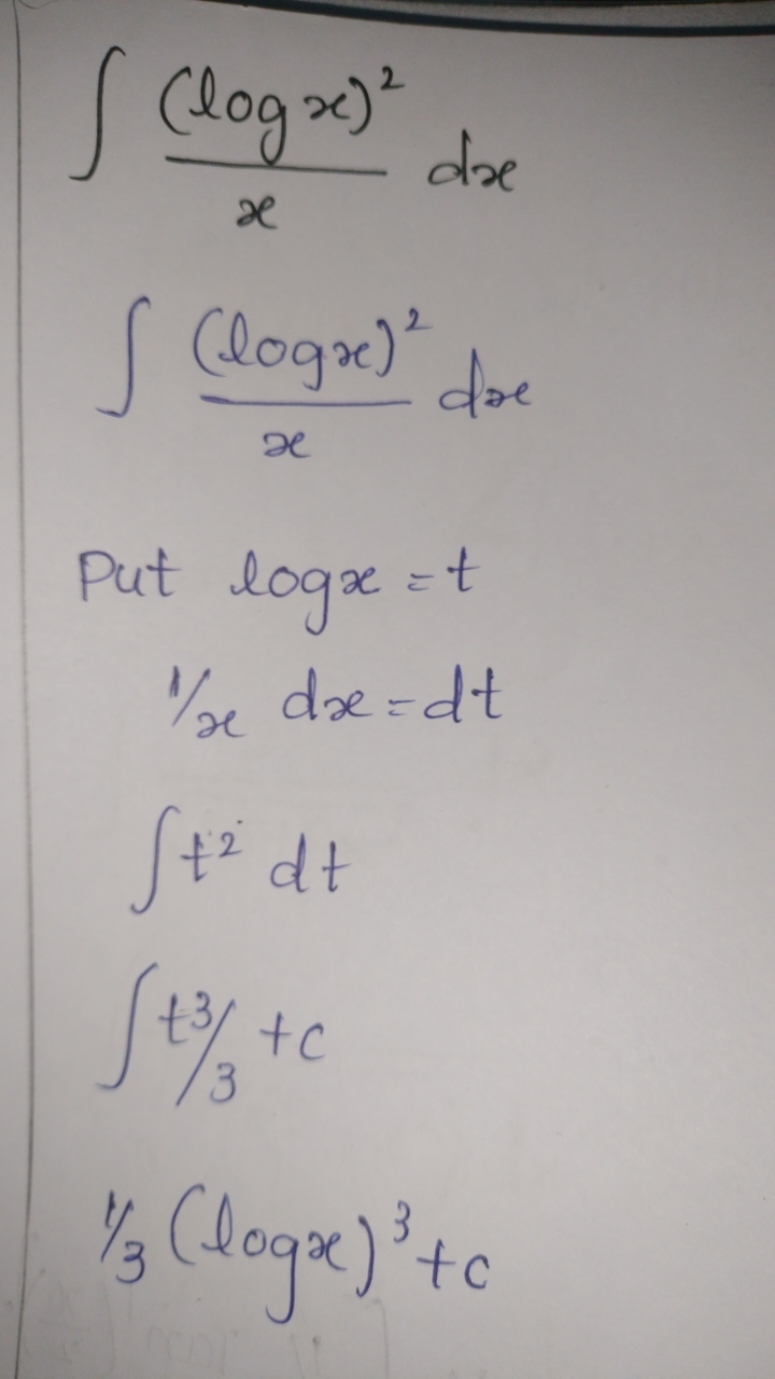 ∫ (log x)² / x dx
∫ (log x)² / x dx
Put log x = t
1/x dx = dt
∫ t² dt
∫ t³/3 + c
1/3 (log x)³ + c